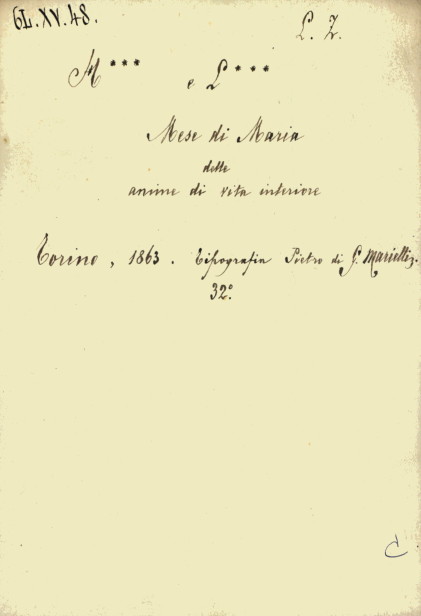 6L.XV.48.
L. Z.
M***
e L***
Mese di Maria
delle
anime di vita interiore
Torino, 1863. Tipografia Pietro di G. Marietti,
32°.
C